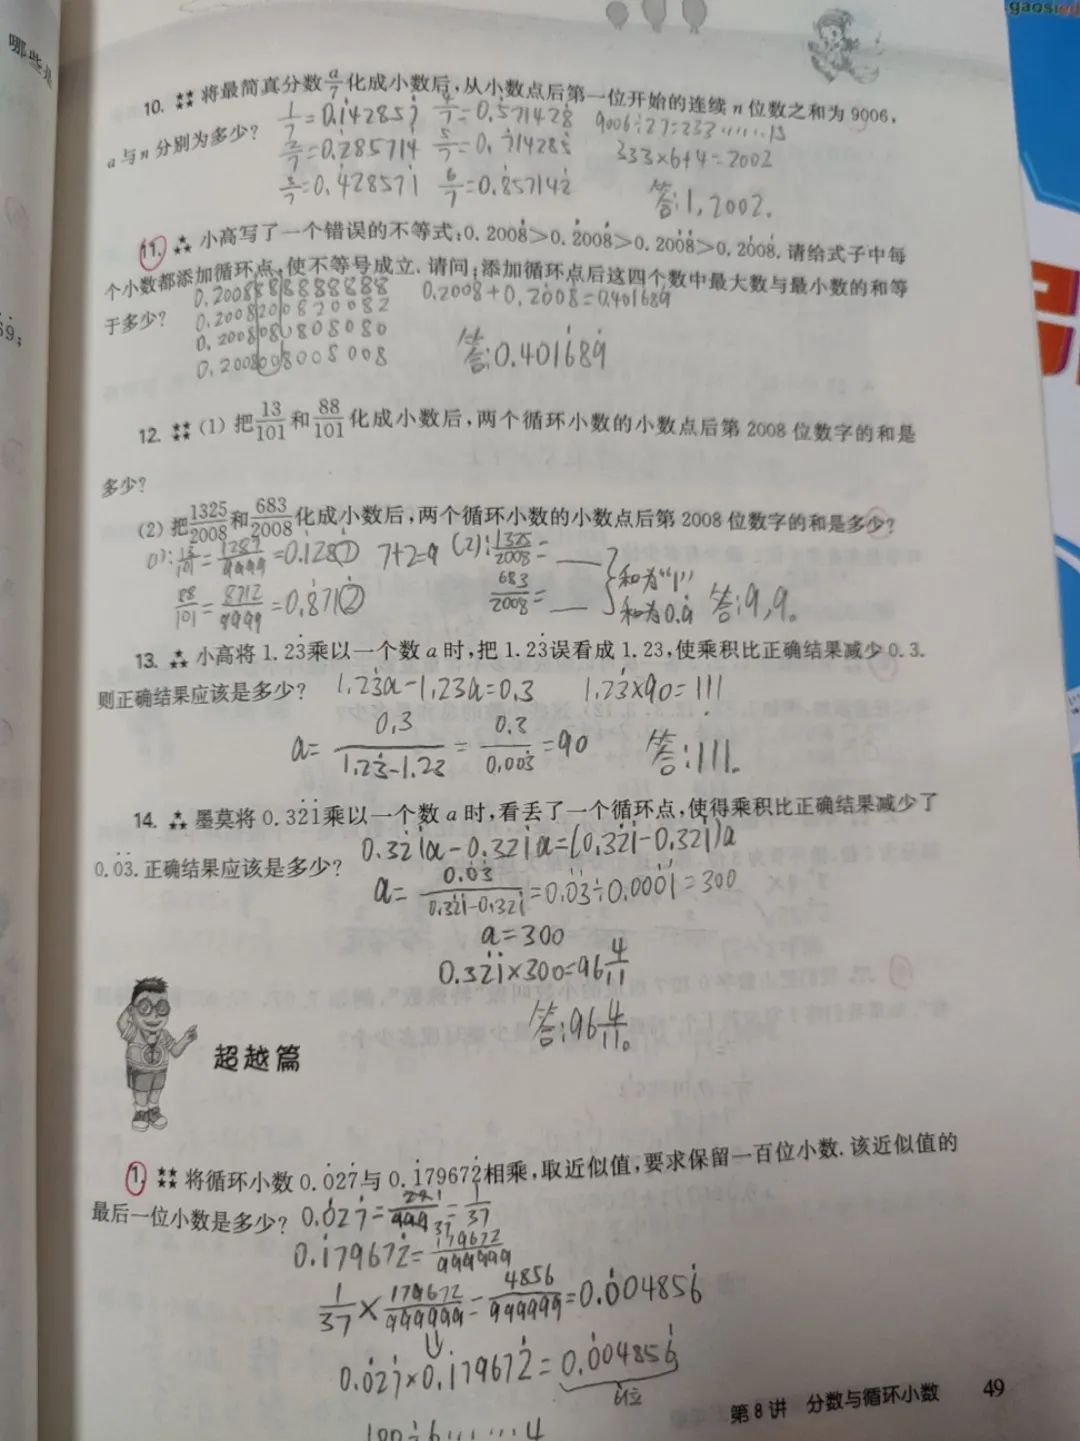 gaosi
哪些是
69;
10. 将最简真分数a/7化成小数后,从小数点后第一位开始的连续 n 位数之和为 9006,
a 与 n 分别为多少?
1/7=0.1̇42857̇ 4/7=0.5̇71428̇ 9006÷27=233……15
2/7=0.2̇85714̇ 5/7=0.7̇14285̇ 333×6+4=2002
3/7=0.4̇28571̇ 6/7=0.8̇57142̇
答:1,2002。
11. 小高写了一个错误的不等式:0.2008̇>0.2̇008̇>0.20̇08̇>0.2̇008̇. 请给式子中每
个小数都添加循环点,使不等号成立. 请问:添加循环点后这四个数中最大数与最小数的和等
于多少?
0.200888888888 0.2008̇+0.20̇08̇=0.401689
0.200820082
0.200808080
0.2008008008
答:0.4016̇89̇
12. (1) 把13/101和88/101化成小数后,两个循环小数的小数点后第 2008 位数字的和是
多少?
(2) 把1325/2008和683/2008化成小数后,两个循环小数的小数点后第 2008 位数字的和是多少?
(1):13/101=1287/9999=0.1̇287̇ 7+2=9 (2):1325/2008=
88/101=8712/9999=0.8̇712̇ 683/2008= 和为“1” 和为0.9̇ 答:9,9。
13. 小高将 1.23̇乘以一个数 a 时,把 1.23̇误看成 1.23,使乘积比正确结果减少 0.3.
则正确结果应该是多少? 1.23̇a-1.23a=0.3 1.23̇×90=111
a=0.3/(1.23̇-1.23)=0.3/0.003̇=90 答:111。
14. 墨莫将 0.32̇1̇乘以一个数 a 时,看丢了一个循环点,使得乘积比正确结果减少了
0.0̇3̇. 正确结果应该是多少? 0.32̇1̇a-0.321̇a=(0.32̇1̇-0.321̇)a
a=0.0̇3̇/(0.32̇1̇-0.321̇)=0.0̇3̇÷0.000̇1̇=300
a=300
0.32̇1̇×300=96 4/11
答:96 4/11。
超越篇
1. 将循环小数 0.0̇27̇与 0.1̇79672̇相乘,取近似值,要求保留一百位小数. 该近似值的
最后一位小数是多少? 0.0̇27̇=27/999=1/37
0.1̇79672̇=179672/999999
1/37×179672/999999=4856/999999=0.0̇04856̇
0.0̇27̇×0.1̇79672̇=0.0̇04856̇
6位
100÷6……4
第 8 讲 分数与循环小数 49